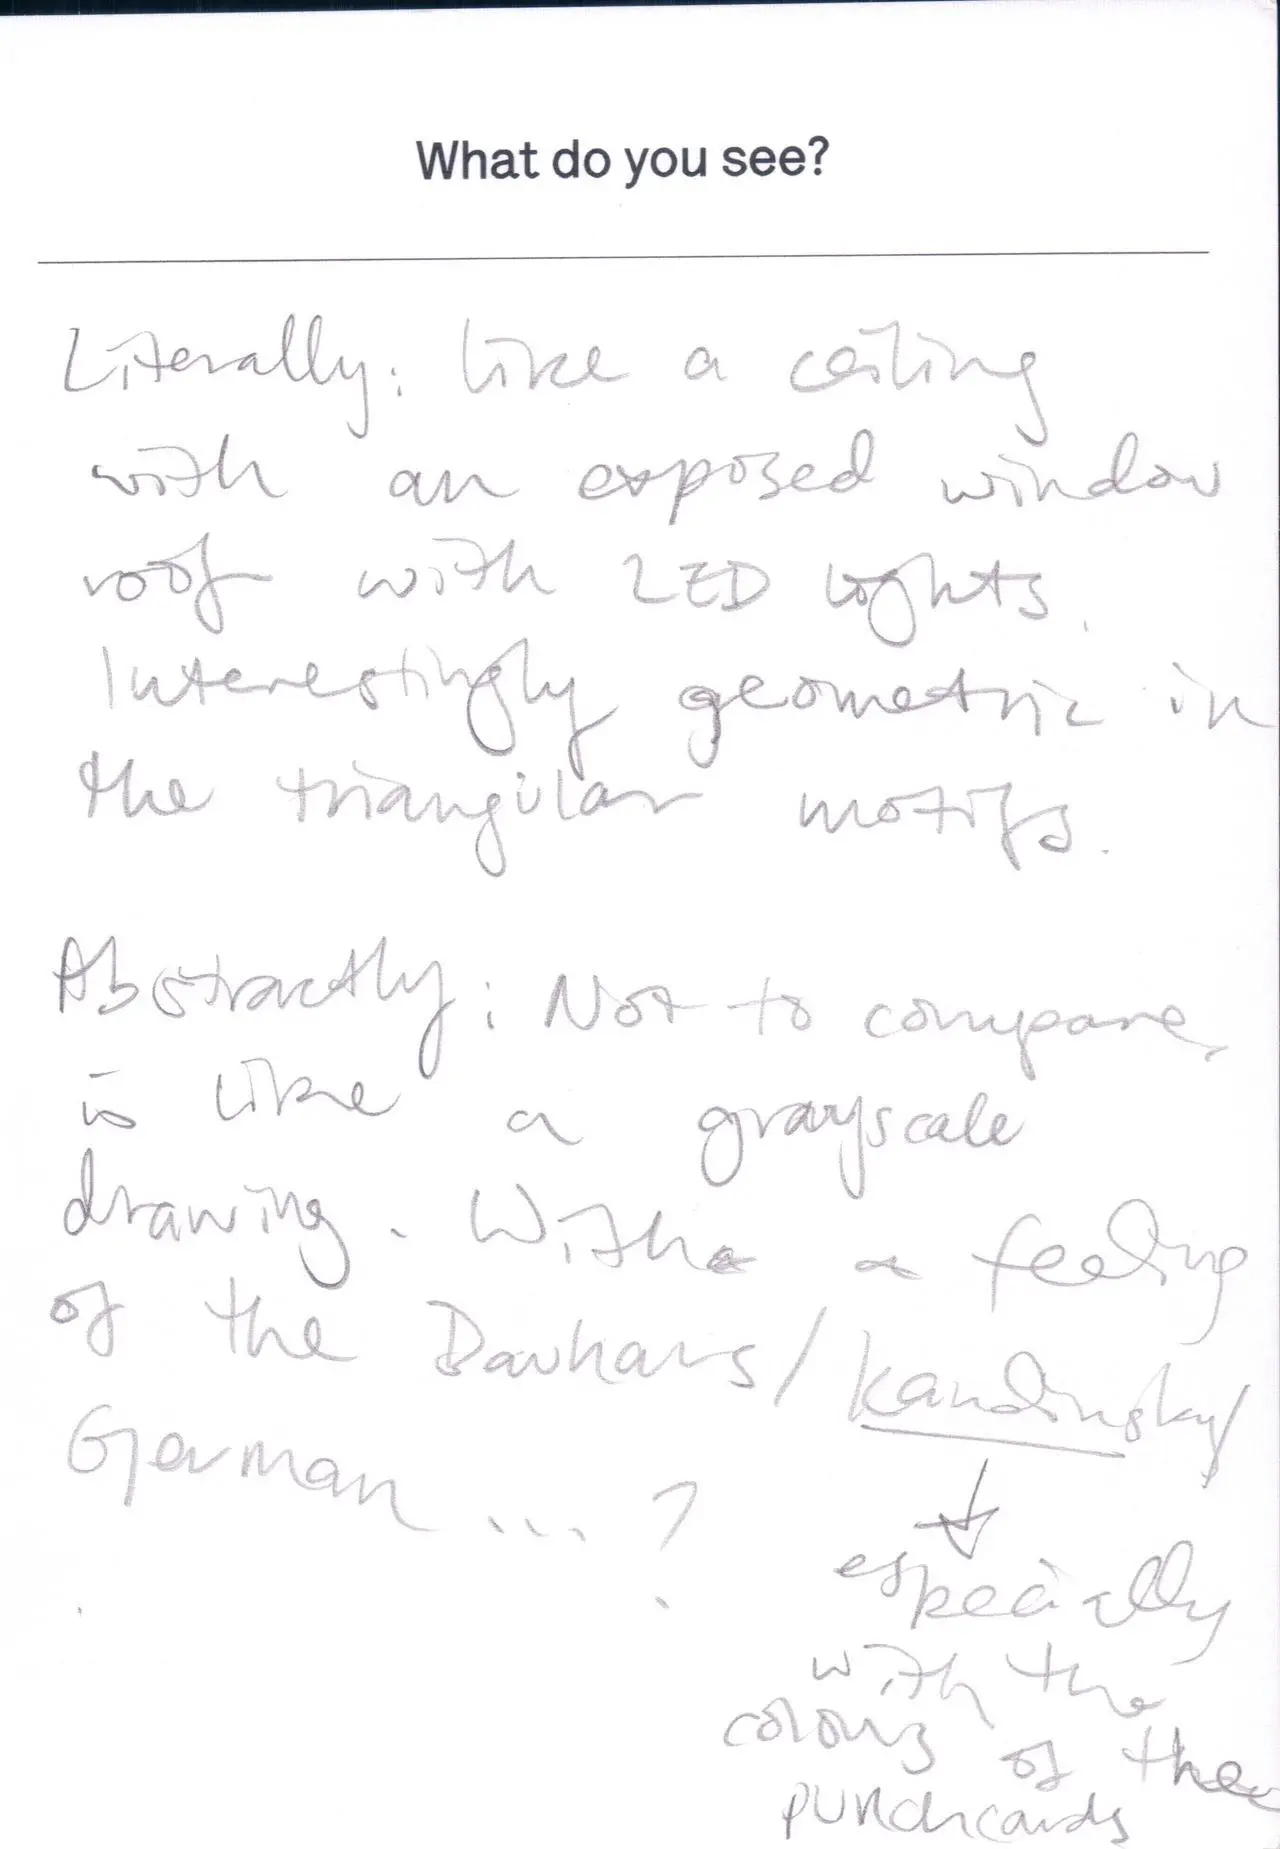 What do you see?
Literally: like a ceiling
with an exposed window
roof with LED lights.
Interestingly geometric in
the triangular motifs.
Abstractly: Not to compare,
is like a grayscale
drawing. With a feeling
of the Bauhaus/Kandinsky/
German ...?
especially
with the
colors of the
punchcards